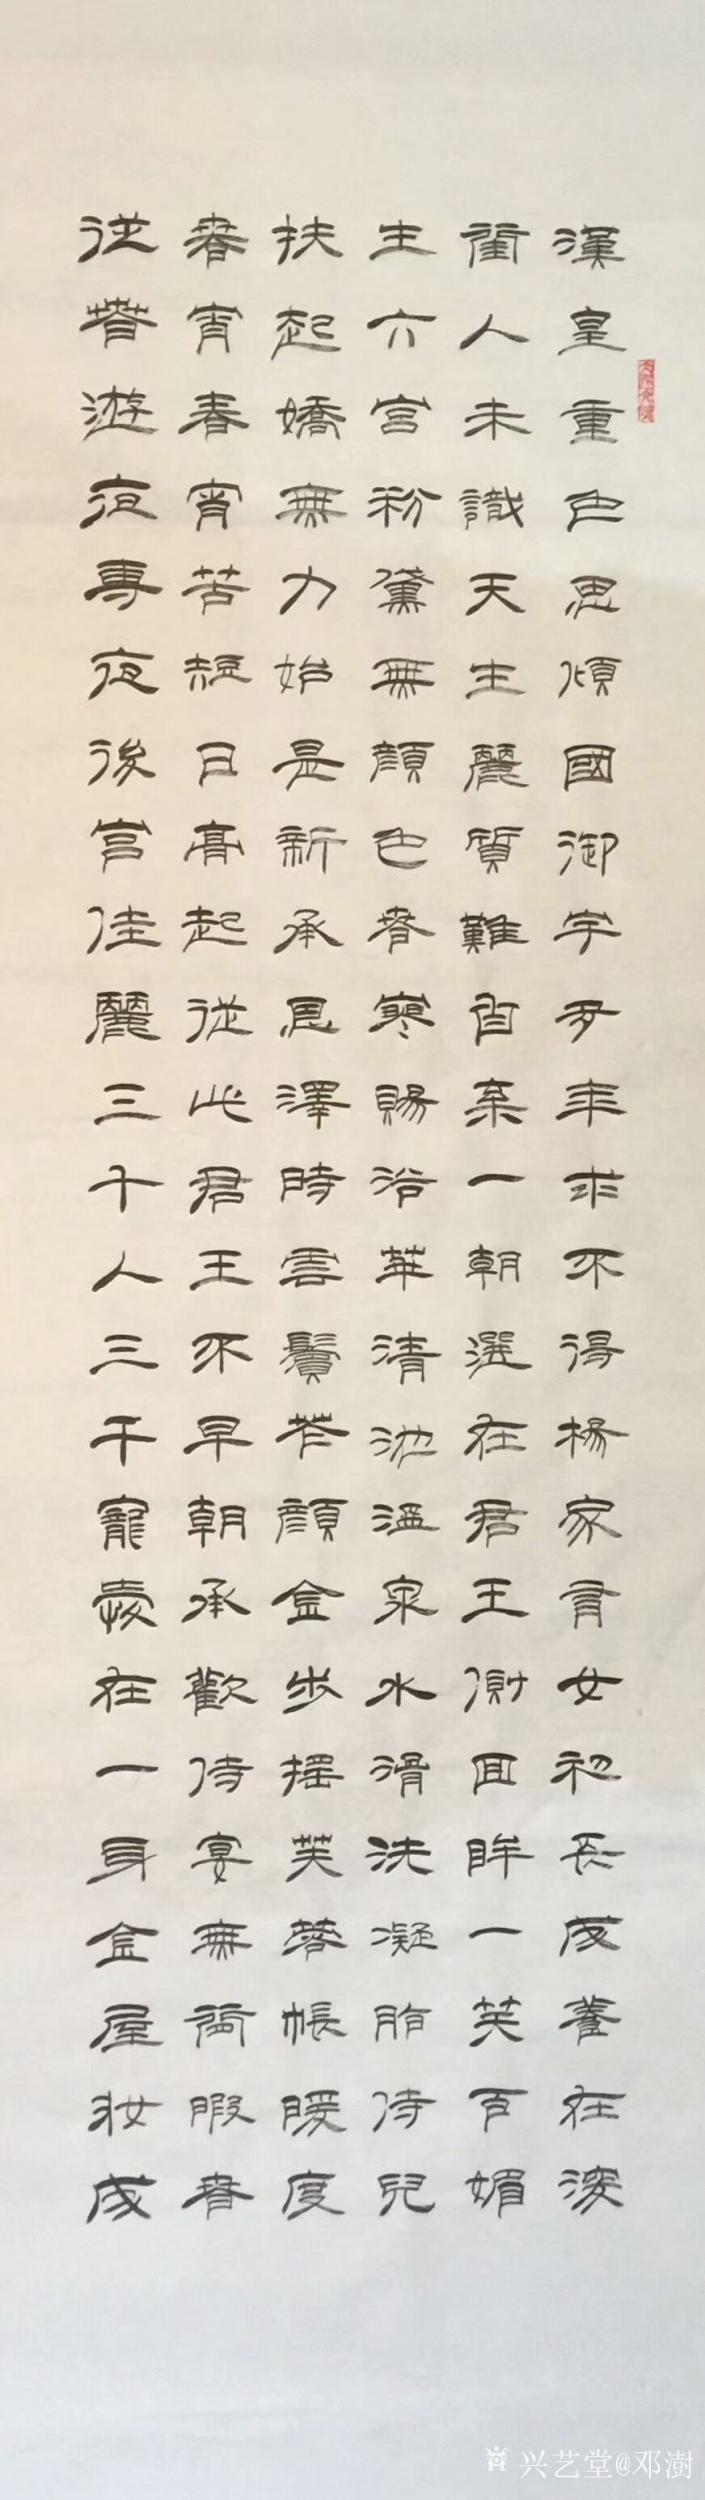 漢皇重色思傾國御宇多年求不得楊家有女初長成養在深
閨人未識天生麗質難自棄一朝選在君王側回眸一笑百媚
生六宮粉黛無顏色春寒賜浴華清池溫泉水滑洗凝脂侍兒
扶起嬌無力始是新承恩澤時雲鬢花顏金步搖芙蓉帳暖度
春宵春宵苦短日高起從此君王不早朝承歡侍宴無閒暇春
從春遊夜專夜後宮佳麗三千人三千寵愛在一身金屋妝成
兴艺堂@邓澍